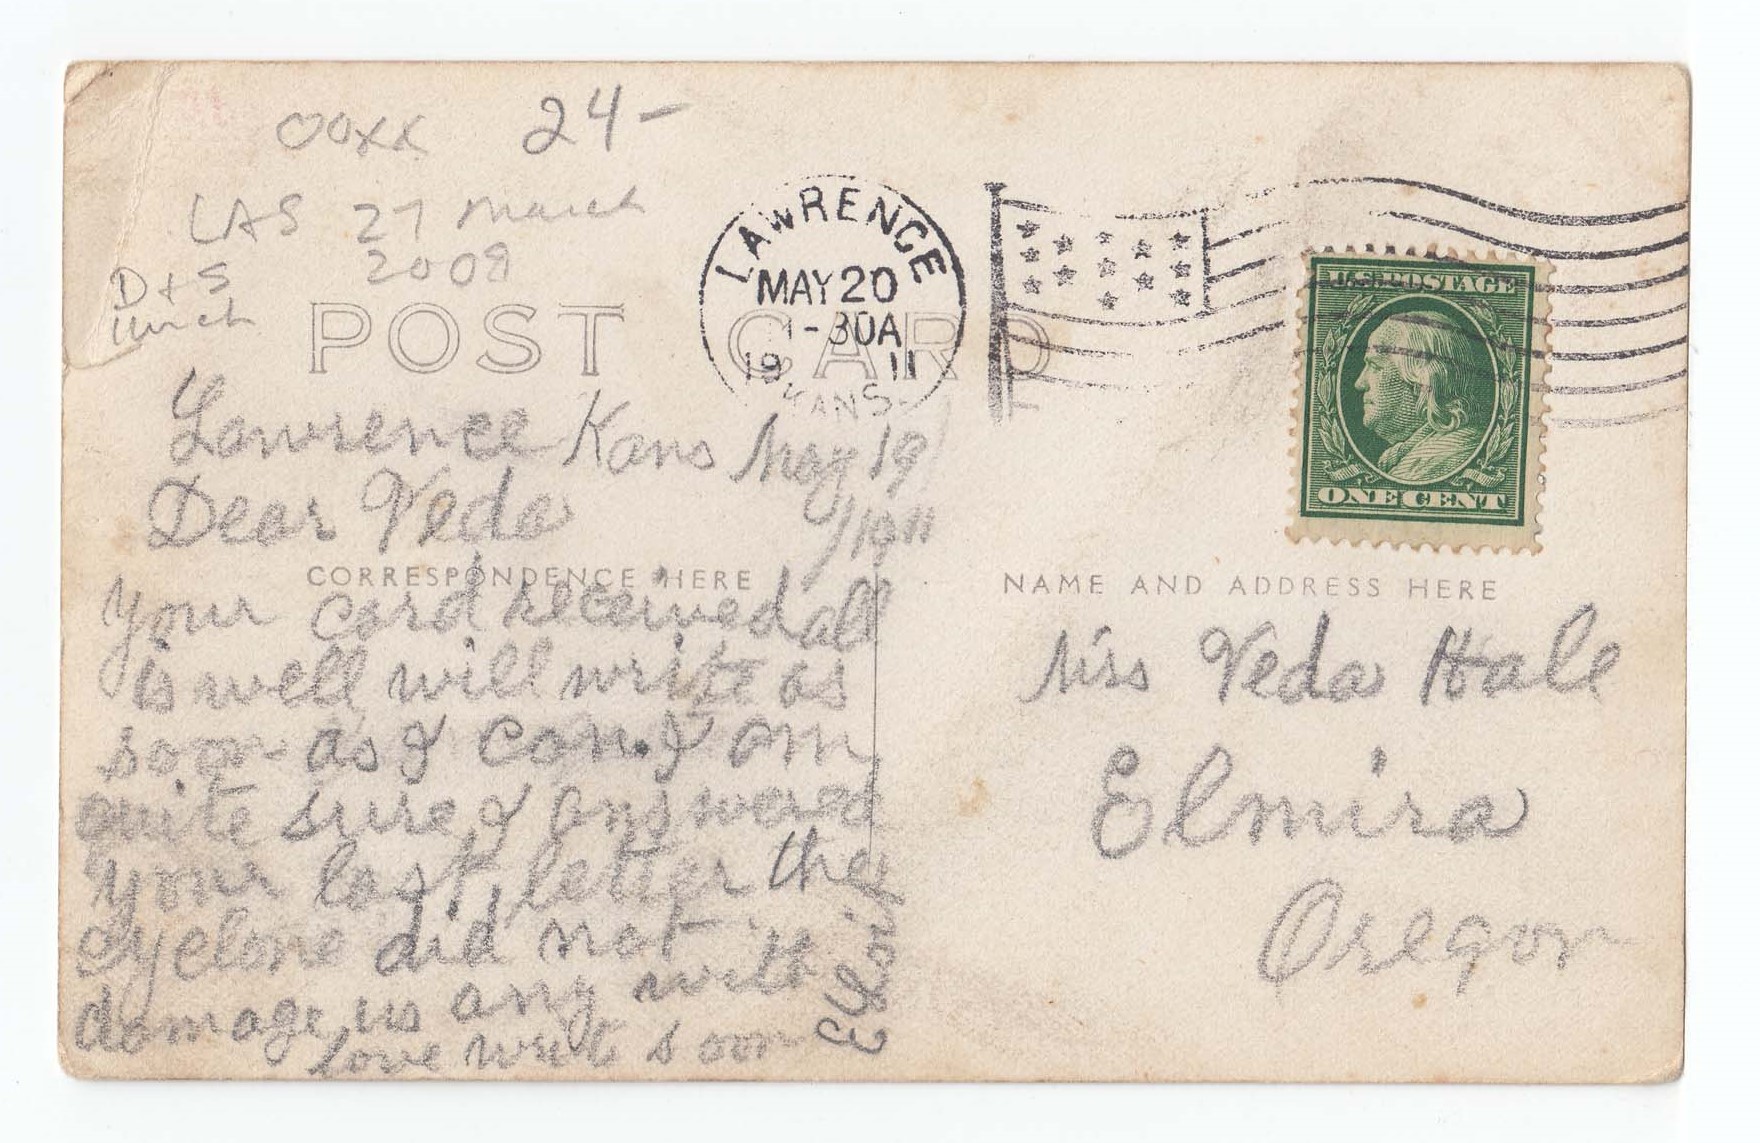 ooxx 24-
LAS 27 March
2009
D+S
LAWRENCE
MAY 20
-30A
19 11
KANS.
U.S. POSTAGE
ONE CENT
POST CARD
Lawrence Kans May 19
/1911
Dear Veda
CORRESPONDENCE HERE
your card received all
is well will write as
soon as I can. I am
quite sure I answered
your last letter the
cyclone did not
damage us any with
love write soon
NAME AND ADDRESS HERE
Miss Veda Hale
Elmira
Oregon